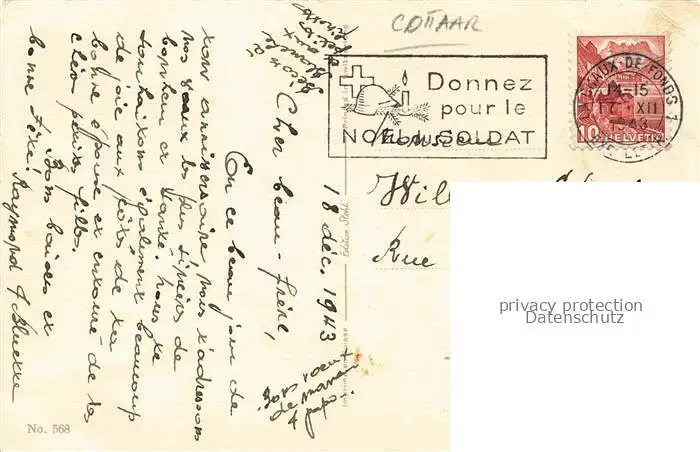 CDTTAAR
18 déc. 1943
Cher beau-frère,
En ce beau jour de
ton anniversaire, nous t'adressons
nos vœux les plus sincères de
bonheur et santé. Nous te
souhaitons également beaucoup
de joie aux côtés de ta
bonne épouse et entouré de tes
chères petites filles.
Bons baisers et
bonne fête!
Raymond &
Bons vœux
de maman
& papa.
Donnez
pour le
NOËL DU SOLDAT
LA CHAUX-DE-FONDS 1
14-15
XII
1943
10 HELVETIA
Monsieur
Rue
Edition Stehli
Imprimé en Suisse
No. 568
privacy protection
Datenschutz